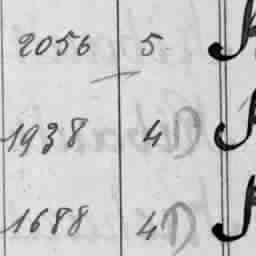 2056 5
1938 4D
1688 4D